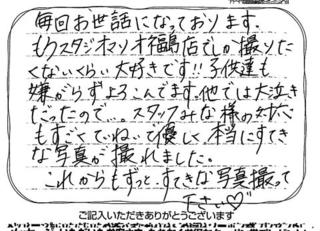 毎回お世話になっております。
もうスタジオマリオ福島店でしか撮りた
くないくらい大好きです!!子供達も
嫌がらずよろこんでます。他では大泣き
だったので…。スタッフみな様の対応
もすごくていねいで優しく、本当にすてき
な写真が撮れました。
これからもずっと、すてきな写真撮って
下さい♡
ご記入いただきありがとうございます